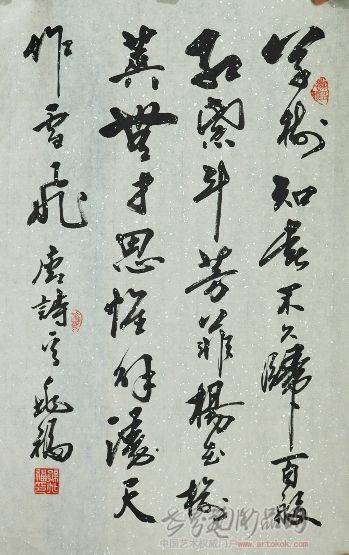 草樹知春不久歸百般
紅紫斗芳菲楊花榆
莢無才思惟解漫天
作雪飛 唐詩 福
中国艺术权威门户 www.artokok.com